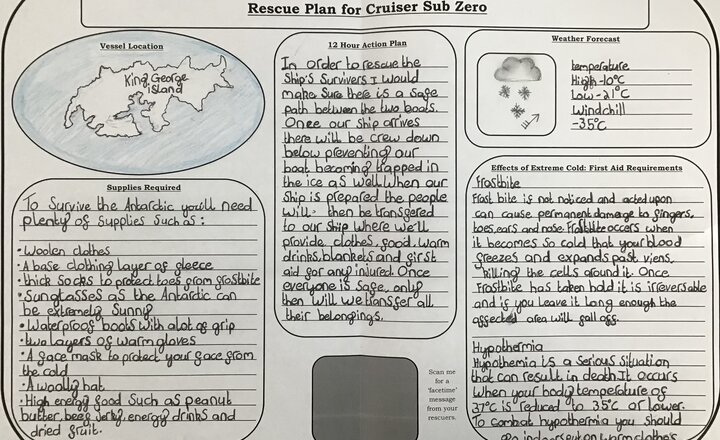 Rescue Plan for Cruiser Sub Zero
Vessel Location
King George
island
Supplies Required
To Survive the Antarctic you'll need
plenty of Supplies Such as:
• Woolen clothes
• A base clothing layer of fleece
• thick socks to protect toes from frostbite
• Sunglasses as the Antarctic can
be extremely Sunny
• Waterproof boots with alot of grip
• two layers of warm gloves
• A face mask to protect your face from
the cold
• A woolly hat
• High energy food Such as peanut
butter, beef jerky, energy drinks and
dried fruit.
12 Hour Action Plan
In order to rescue the
Ship's Survivers I would
make sure there is a safe
path between the two boats.
Once our Ship arrives
there will be crew down
below preventing our
boat becoming trapped in
the ice as well. When our
Ship is prepared the people
will then be transfered
to our Ship where we'll
provide clothes, food, warm
drinks, blankets and first
aid for any injured. Once
everyone is safe, only
then will we transfer all
their belongings.
Scan me
for a
'facetime'
message
from your
rescuers.
Weather Forecast
temperature
High -10°C
Low -21°C
Windchill
-35°C
Effects of Extreme Cold: First Aid Requirements
Frostbite
Frost bite is not noticed and acted upon
can cause permanent damage to fingers,
toes, ears and nose. Frostbite occers when
it becomes so cold that your blood
freezes and expands past viens,
killing the cells around it. Once
Frostbite has taken hold it is irreversable
and if you leave it long enough the
affected area will fall off.
Hypothermia
Hypothemia is a Serious Situation
that can result in death. It occurs
When your body temperature of
37°C is reduced to 35°C or lower.
To combat hypothermia you should
go indoors put on warm clothes